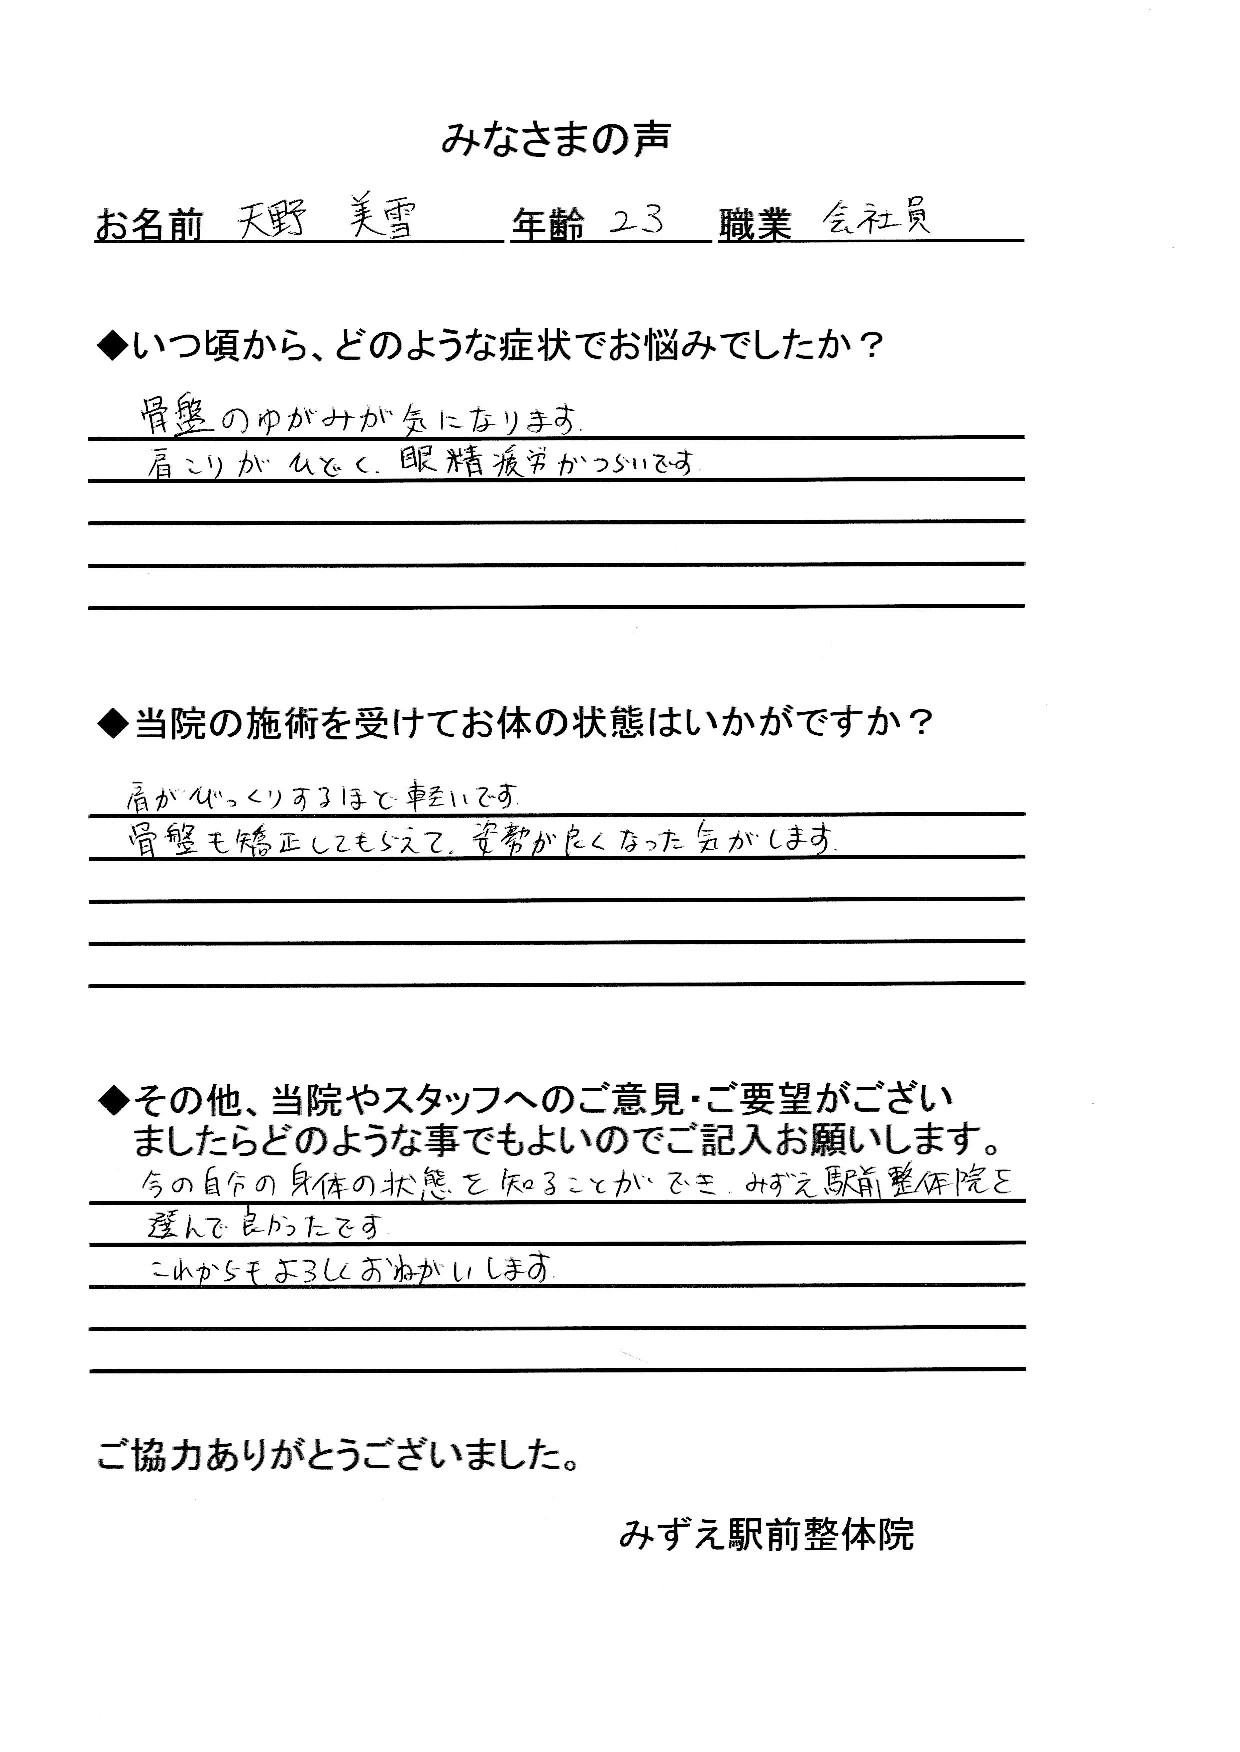 みなさまの声
お名前 天野 美雪 年齢 23 職業 会社員
◆いつ頃から、どのような症状でお悩みでしたか？
骨盤のゆがみが気になります.
肩こりがひどく、眼精疲労がつらいです
◆当院の施術を受けてお体の状態はいかがですか？
肩がびっくりするほど軽いです.
骨盤も矯正してもらえて、姿勢が良くなった気がします.
◆その他、当院やスタッフへのご意見・ご要望がござい
ましたらどのような事でもよいのでご記入お願いします。
今の自分の身体の状態を知ることができ、みずえ駅前整体院を
選んで良かったです
これからもよろしくおねがいします.
ご協力ありがとうございました。
みずえ駅前整体院